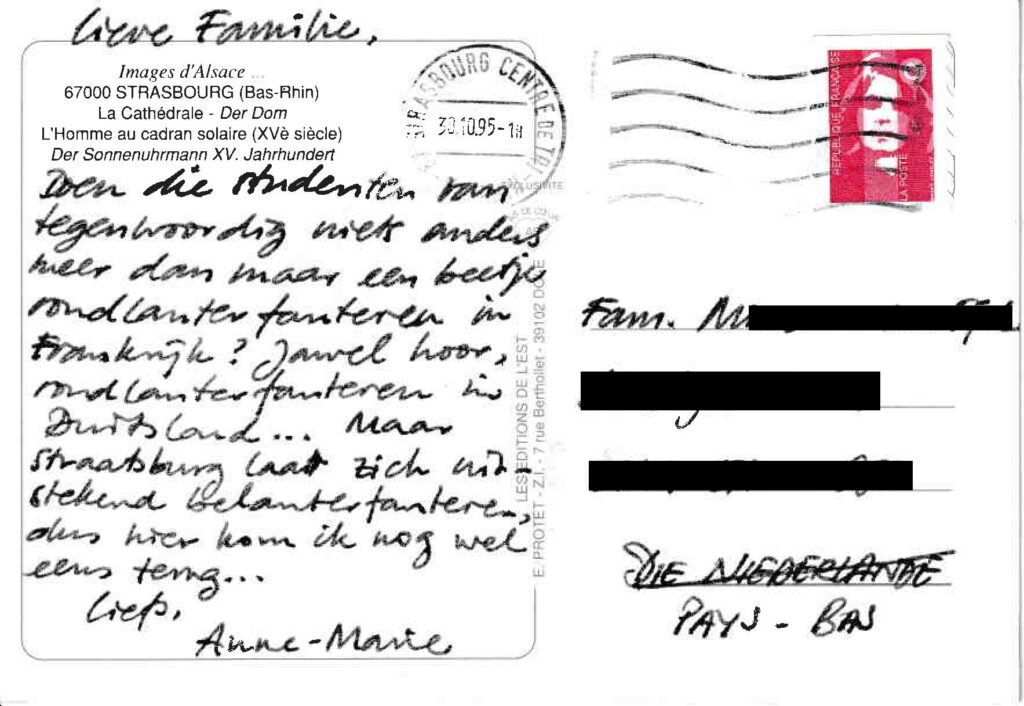 Lieve Familie,
Images d'Alsace ...
67000 STRASBOURG (Bas-Rhin)
La Cathédrale - Der Dom
L'Homme au cadran solaire (XVè siècle)
Der Sonnenuhrmann XV. Jahrhundert
Doen die studenten van
tegenwoordig niets anders
meer dan maar een beetje
rondlanterfanteren in
Frankrijk? Jawel hoor,
rondlanterfanteren in
Duitsland... Maar
Straatsburg laat zich uit-
stekend belanterfanteren,
dus hier kom ik nog wel
eens terug...
Liefs,
Anne-Marie
STRASBOURG CENTRE DE TRI
30.10.95-18
LES EDITIONS DE L'EST
E. PROTET - Z.I. - 7 rue Berthollet - 39102 DOLE
REPUBLIQUE FRANÇAISE
LA POSTE
Fam. M
DIE NIEDERLANDE
PAYS-BAS